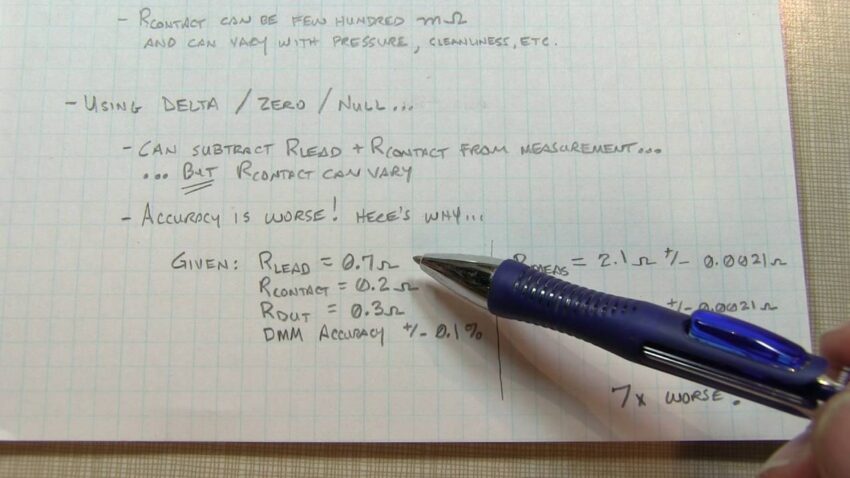 - RCONTACT CAN BE FEW HUNDRED mΩ
AND CAN VARY WITH PRESSURE, CLEANLINESS, ETC.
- USING DELTA / ZERO / NULL...
- CAN SUBTRACT RLEAD + RCONTACT FROM MEASUREMENT...
... BUT RCONTACT CAN VARY
- ACCURACY IS WORSE! HERE'S WHY...
GIVEN: RLEAD = 0.7Ω
RCONTACT = 0.2Ω
RDUT = 0.3Ω
DMM ACCURACY +/- 0.1%
= 2.1Ω +/- 0.0021Ω
+/- 0.0021Ω
7x WORSE!